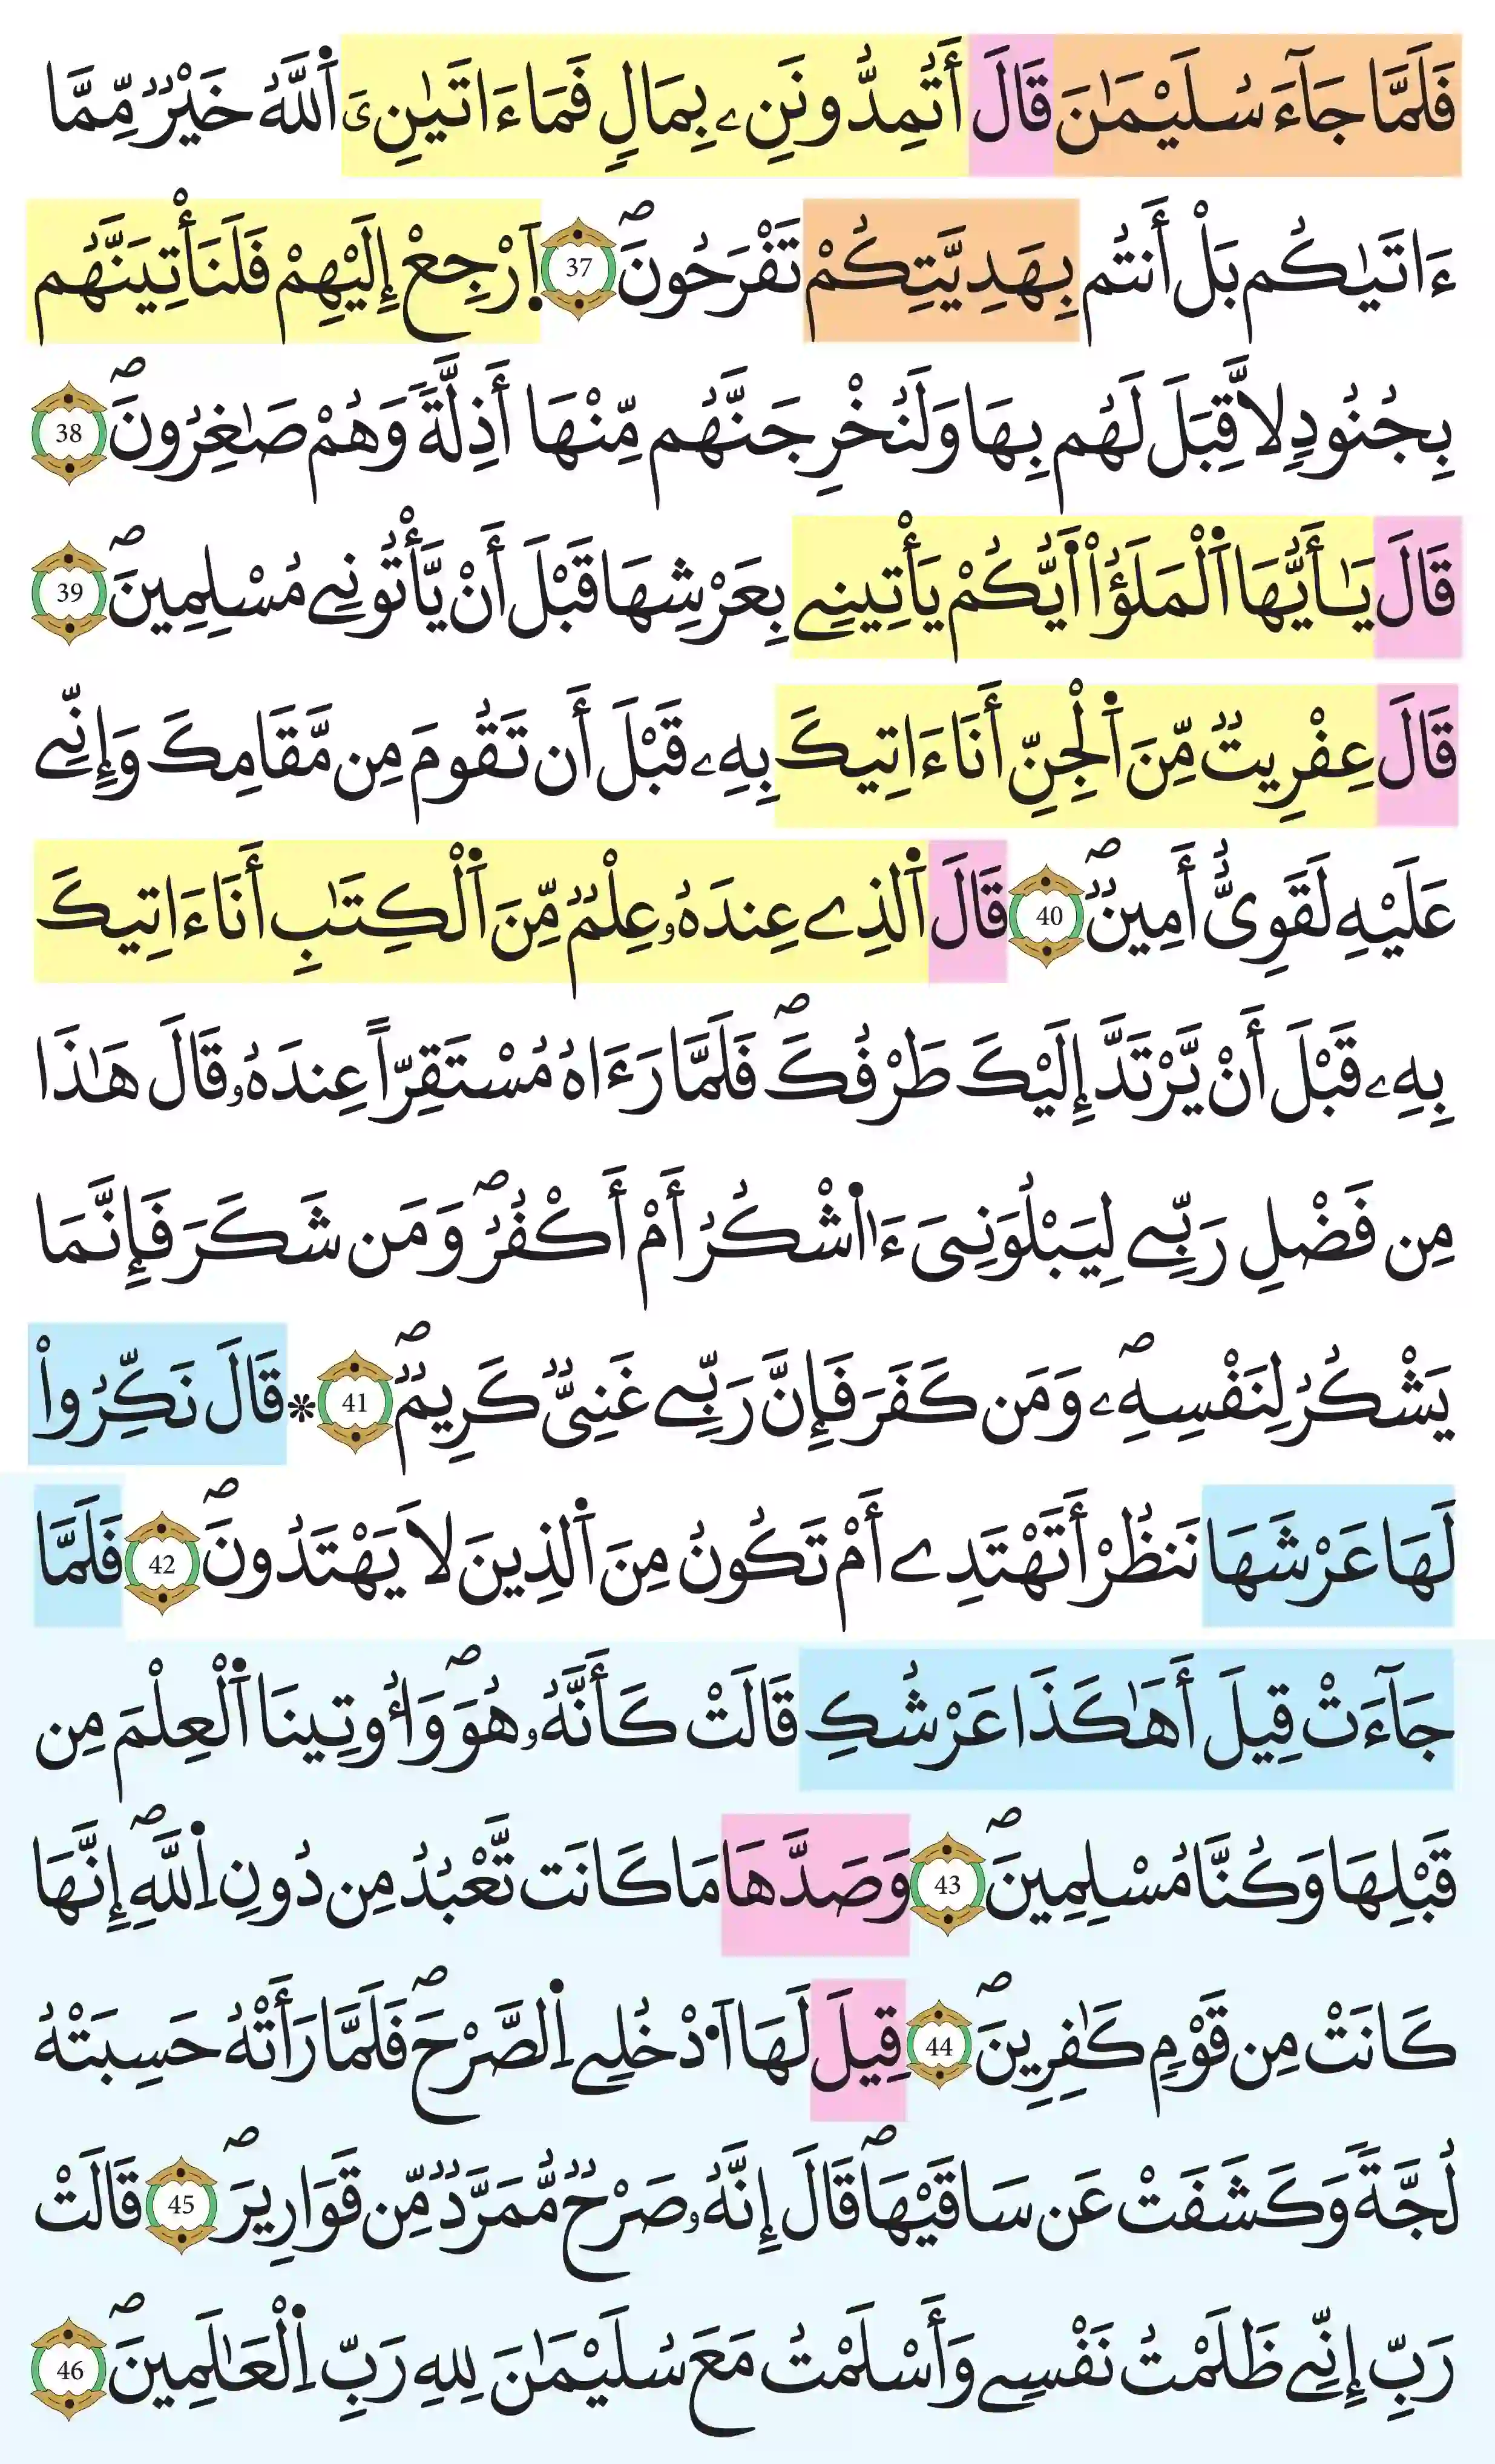 فَلَمَّا جَآءَ سُلَيْمَٰنَ قَالَ أَتُمِدُّونَنِۦ بِمَالٍ فَمَا ءَاتَيٰنِۦَ اَ۬للَّهُ خَيْرٞ مِّمَّا
ءَاتَيٰكُم بَلْ أَنتُم بِهَدِيَّتِكُمْ تَفْرَحُونَۖ 37 اَ۪رْجِعْ إِلَيْهِمْ فَلَنَأْتِيَنَّهُم
بِجُنُودٖ لَّا قِبَلَ لَهُم بِهَا وَلَنُخْرِجَنَّهُم مِّنْهَا أَذِلَّةٗ وَهُمْ صَٰغِرُونَۖ 38
قَالَ يَٰٓأَيُّهَا اَ۬لْمَلَؤُاْ اَيُّكُمْ يَأْتِينِے بِعَرْشِهَا قَبْلَ أَنْ يَّأْتُونِے مُسْلِمِينَۖ 39
قَالَ عِفْرِيتٞ مِّنَ اَ۬لْجِنِّ أَنَا ءَاتِيكَ بِهِۦ قَبْلَ أَن تَقُومَ مِن مَّقَامِكَ وَإِنِّے
عَلَيْهِ لَقَوِيٌّ أَمِينٞۖ 40 قَالَ اَ۬لذِے عِندَهُۥ عِلْمٞ مِّنَ اَ۬لْكِتَٰبِ أَنَا ءَاتِيكَ
بِهِۦ قَبْلَ أَنْ يَّرْتَدَّ إِلَيْكَ طَرْفُكَۖ فَلَمَّا رَءَاهُ مُسْتَقِرّاً عِندَهُۥ قَالَ هَٰذَا
مِن فَضْلِ رَبِّے لِيَبْلُوَنِيَ ءَا۬شْكُرُ أَمْ أَكْفُرُۖ وَمَن شَكَرَ فَإِنَّمَا
يَشْكُرُ لِنَفْسِهِۦۖ وَمَن كَفَرَ فَإِنَّ رَبِّے غَنِيّٞ كَرِيمٞۖ 41 ۞ قَالَ نَكِّرُواْ
لَهَا عَرْشَهَا نَنظُرْ أَتَهْتَدِے أَمْ تَكُونُ مِنَ اَ۬لذِينَ لَا يَهْتَدُونَۖ 42 فَلَمَّا
جَآءَتْ قِيلَ أَهَٰكَذَا عَرْشُكِ قَالَتْ كَأَنَّهُۥ هُوَۖ وَأُوتِينَا اَ۬لْعِلْمَ مِن
قَبْلِهَا وَكُنَّا مُسْلِمِينَۖ 43 وَصَدَّهَا مَا كَانَت تَّعْبُدُ مِن دُونِ اِ۬للَّهِۖ إِنَّهَا
كَانَتْ مِن قَوْمٖ كَٰفِرِينَۖ 44 قِيلَ لَهَا اَ۟دْخُلِے اِ۬لصَّرْحَۖ فَلَمَّا رَأَتْهُ حَسِبَتْهُ
لُجَّةٗ وَكَشَفَتْ عَن سَاقَيْهَاۖ قَالَ إِنَّهُۥ صَرْحٞ مُّمَرَّدٞ مِّن قَوَارِيرَۖ 45 قَالَتْ
رَبِّ إِنِّے ظَلَمْتُ نَفْسِے وَأَسْلَمْتُ مَعَ سُلَيْمَٰنَ لِلهِ رَبِّ اِ۬لْعَٰلَمِينَۖ 46